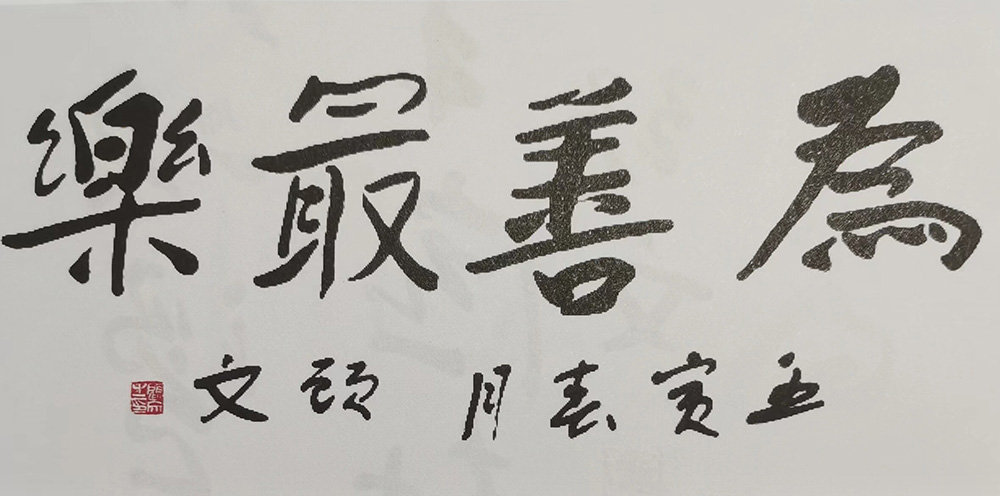 為善最樂
壬寅春月 顾文